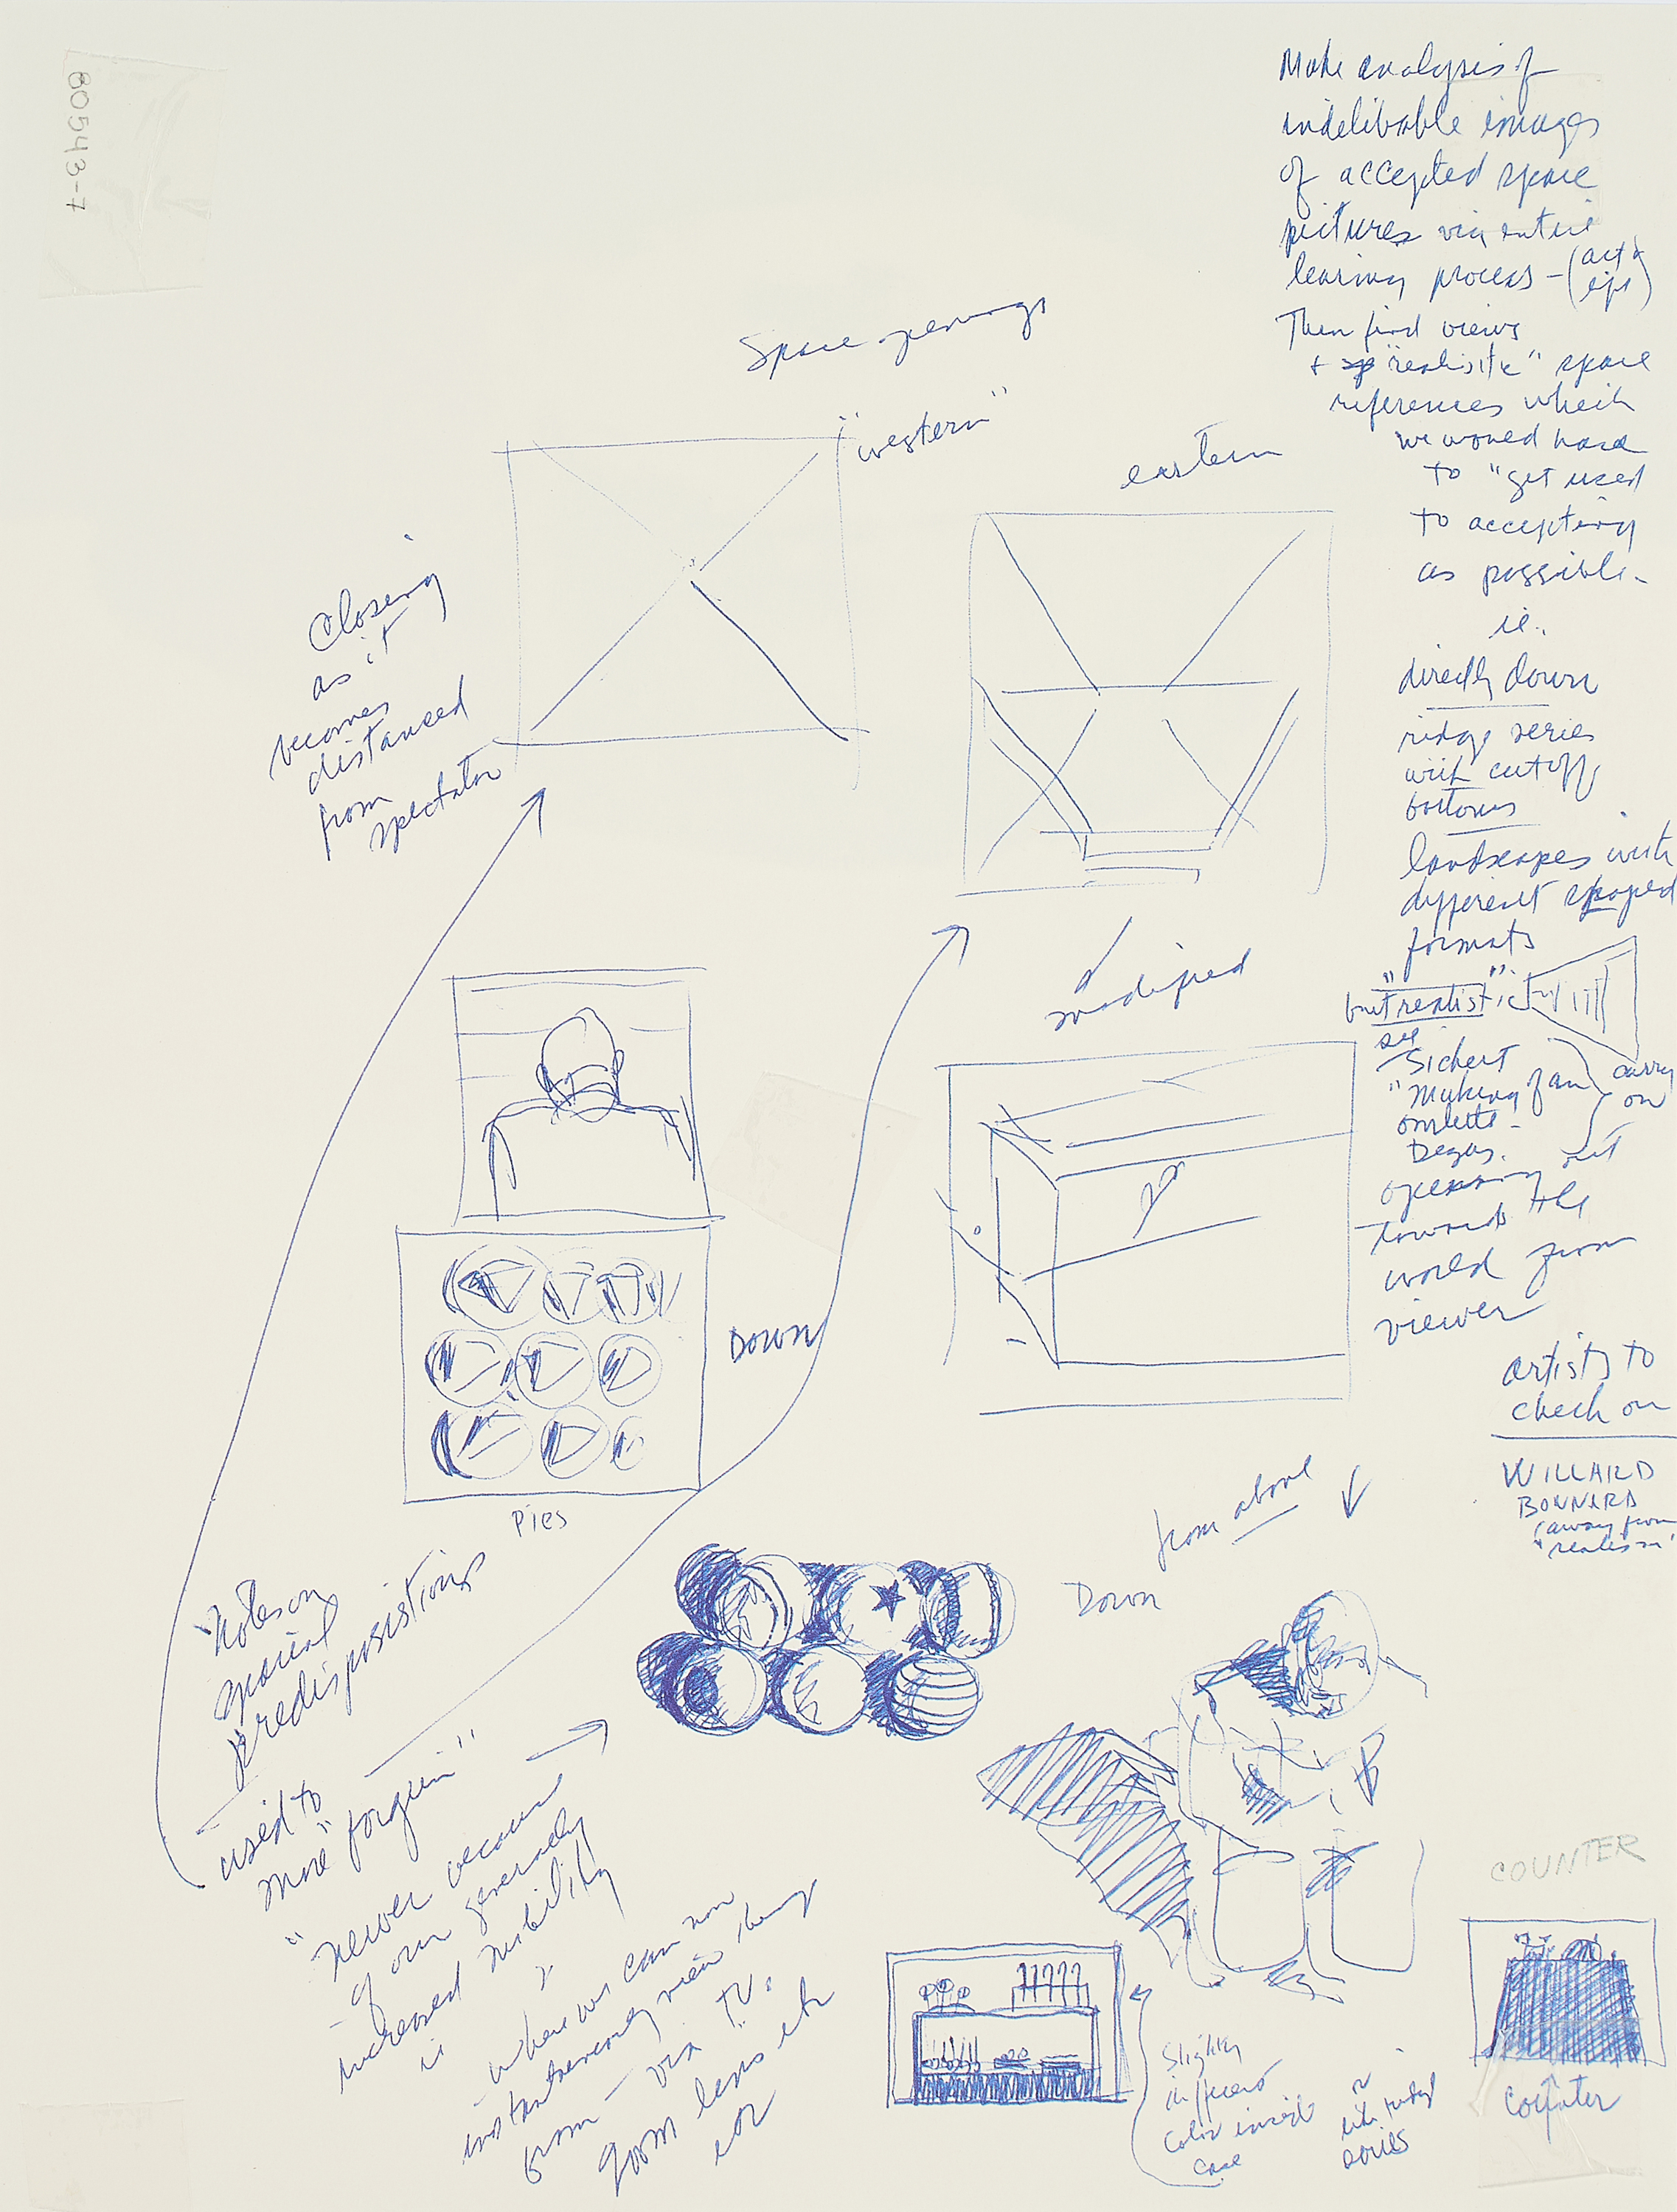 80543-7
Make analysis of
indelibable images
of accepted space
pictures via entire
learning process - (art &
Then find views
+ "realistic" space
references which
we would have
to "get used
to accepting
as possible -
ie.
directly down
ridge series
with cutoff
bottoms
landscapes with
different shaped
formats
but "realistic".
see
Sickert
"Making of an
omlette -
Degas.
carry
on
opening out
towards the
world from
viewer
artists to
check on
WILLARD
BONNARD
(away from
"realism"
Space openings
"western"
eastern
Closing
as it
becomes
distanced
from
spectator
modified
DOWN
Pies
from above
Down
"Notes on
spacial
predisposistions
used to
more "forguin"
"newer because
of our generally
increased mobility
is
where we can now
instantaneously view things
from — via "TV:
zoom lens etc
COUNTER
counter
Slightly
different
color inside
case
series